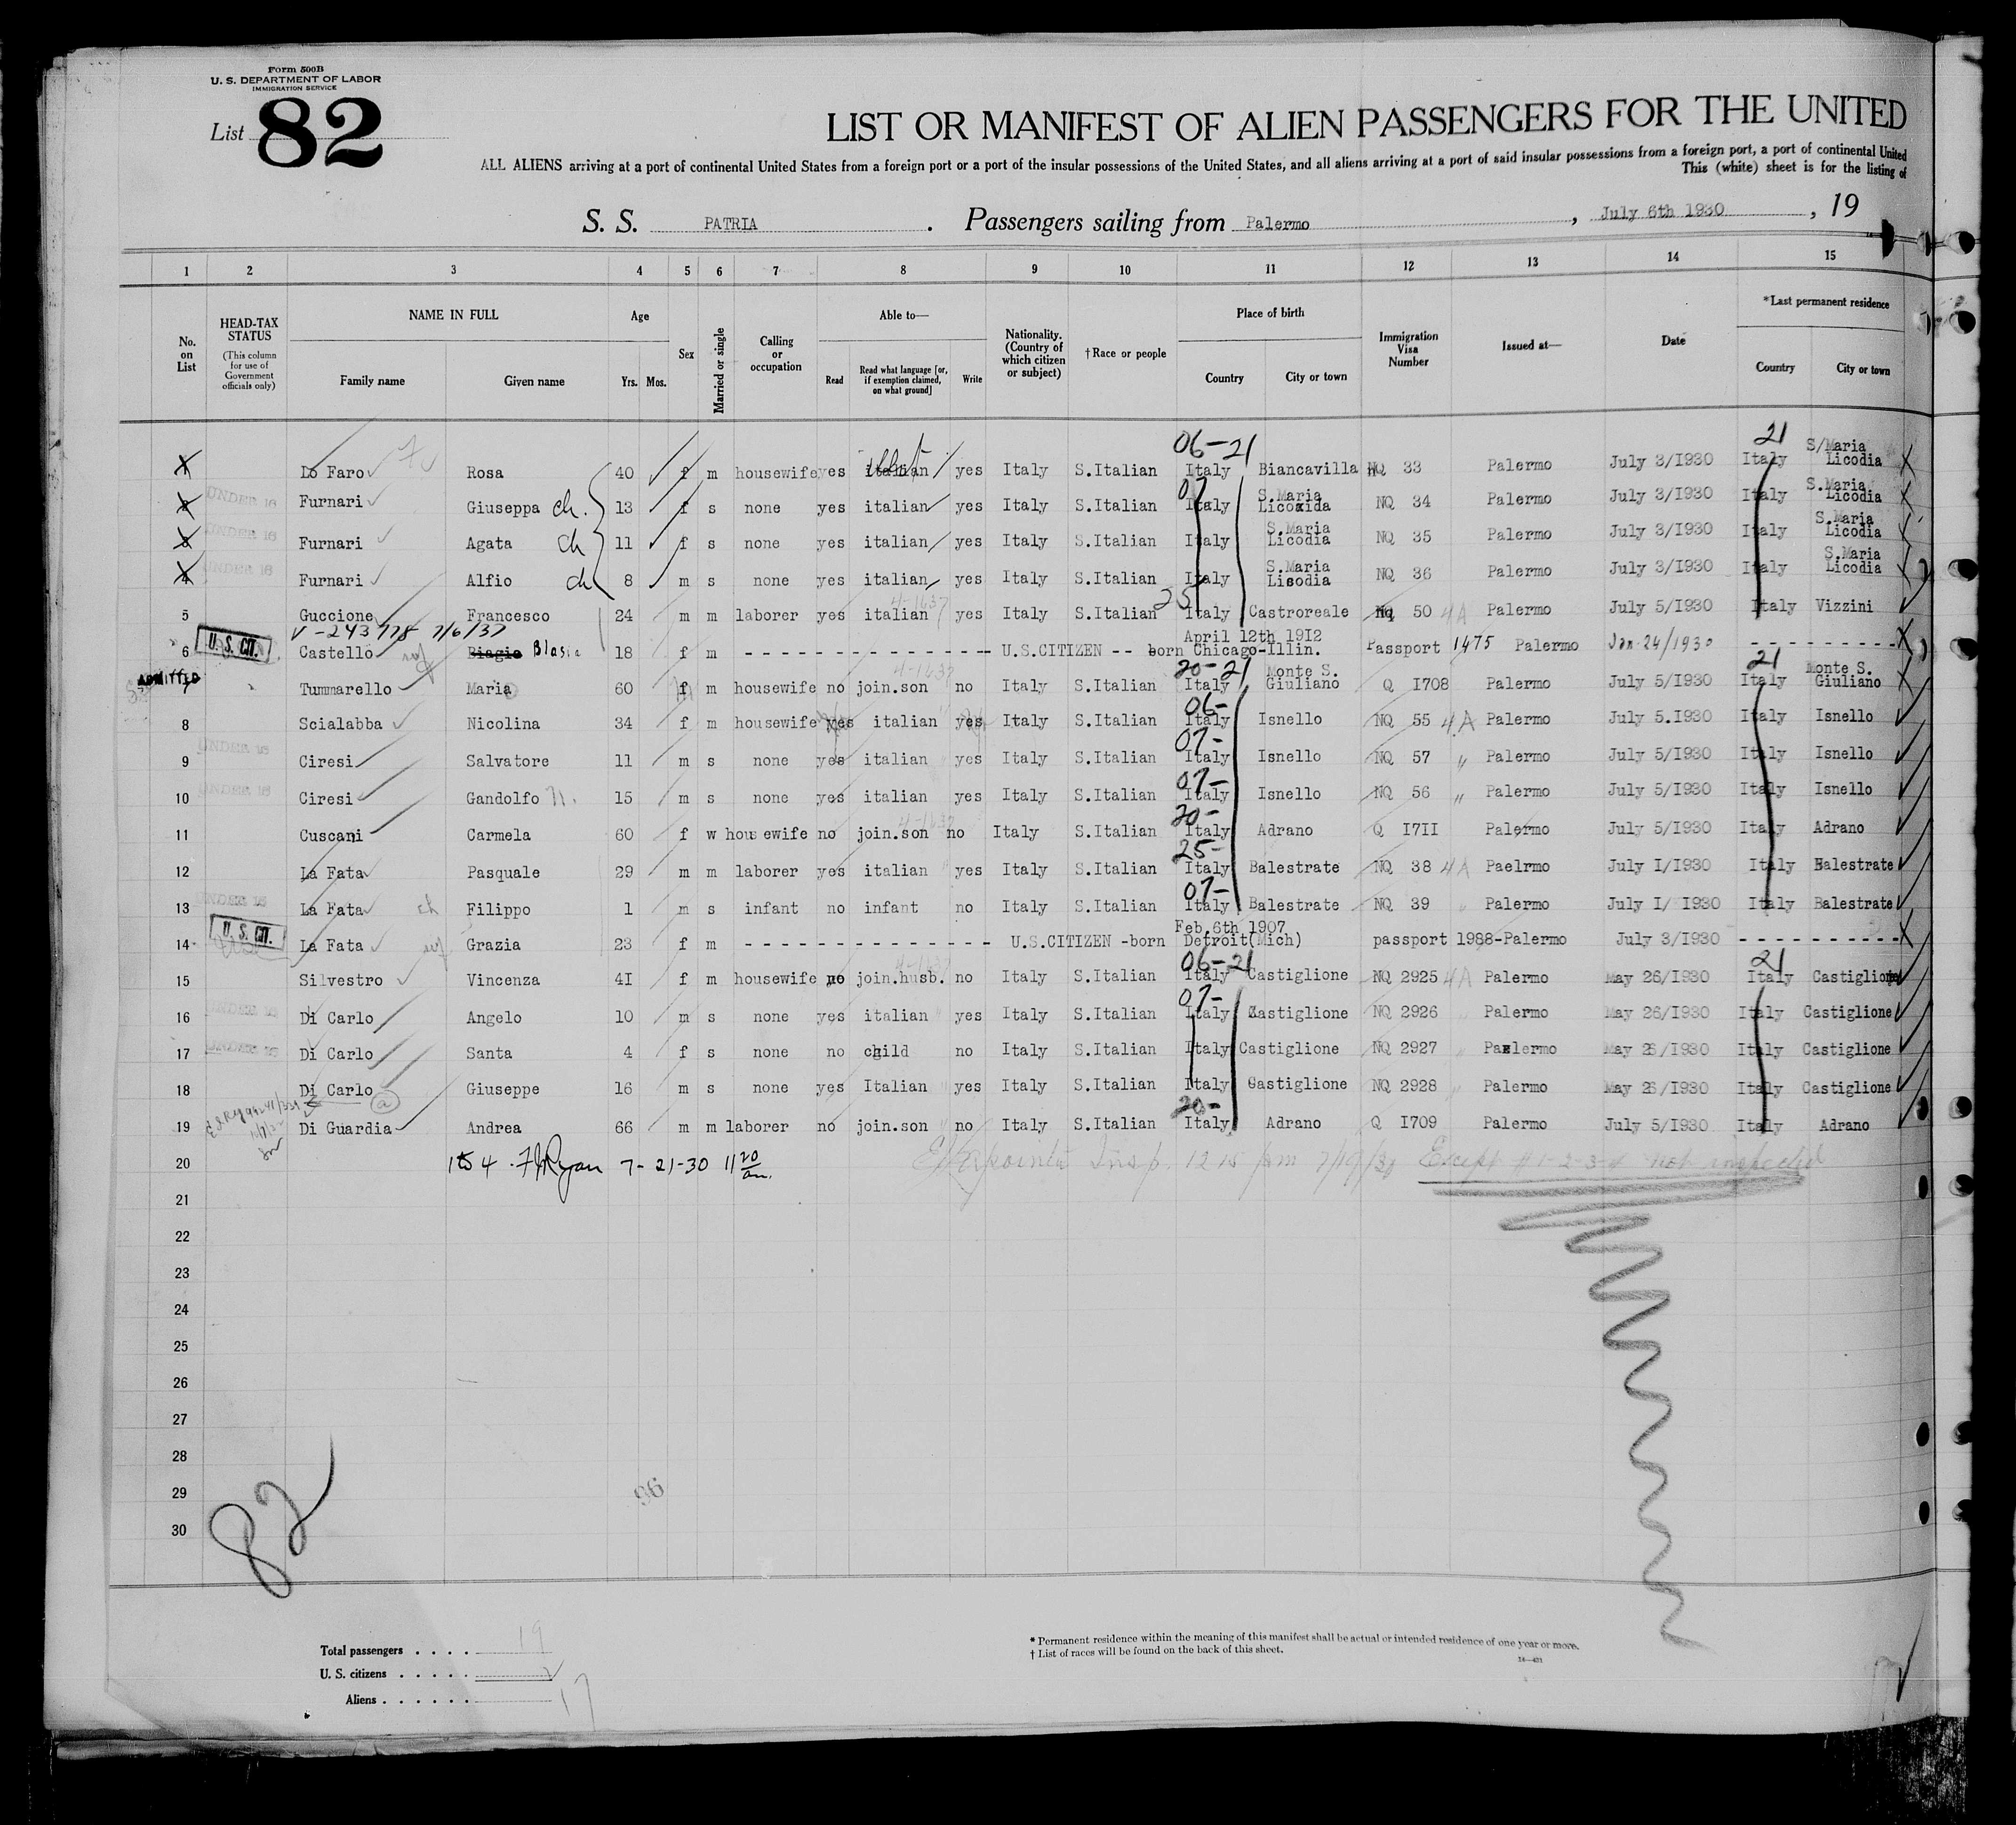 Form 500B
U. S. DEPARTMENT OF LABOR
IMMIGRATION SERVICE
List 82
LIST OR MANIFEST OF ALIEN PASSENGERS FOR THE UNITED
ALL ALIENS arriving at a port of continental United States from a foreign port or a port of the insular possessions of the United States, and all aliens arriving at a port of said insular possessions from a foreign port, a port of continental United
This (white) sheet is for the listing of
S. S. PATRIA. Passengers sailing from Palermo, July 6th 1930, 19
1 2 3 4 5 6 7 8 9 10 11 12 13 14 15
No. on List
HEAD-TAX STATUS (This column for use of Government officials only)
NAME IN FULL Family name Given name
Age Yrs. Mos.
Sex
Married or single
Calling or occupation
Able to— Read Read what language [or, if exemption claimed, on what ground] Write
Nationality. (Country of which citizen or subject)
†Race or people
Place of birth Country City or town
Immigration Visa Number
Issued at—
Date
*Last permanent residence Country City or town
06-21 21
1 Lo Faro Rosa 40 f m housewife yes italian yes Italy S.Italian Italy Biancavilla NQ 33 Palermo July 3/I930 Italy S/Maria Licodia
2 UNDER 16 Furnari Giuseppa ch. 13 f s none yes italian yes Italy S.Italian Italy S.Maria Licoxida NQ 34 Palermo July 3/I930 Italy S.Maria Licodia
3 UNDER 16 Furnari Agata ch 11 f s none yes italian yes Italy S.Italian Italy S.Maria Licodia NQ 35 Palermo July 3/I930 Italy S.Maria Licodia
4 UNDER 16 Furnari Alfio ch 8 m s none yes italian yes Italy S.Italian Italy S.Maria Lisodia NQ 36 Palermo July 3/I930 Italy S.Maria Licodia
4-1637 25
5 Guccione Francesco 24 m m laborer yes italian yes Italy S.Italian Italy Castroreale Nq 50 4A Palermo July 5/I930 Italy Vizzini
V-243778 7/6/37
6 U. S. CIT. Castello wf Biagio Blasia 18 f m - - - U.S.CITIZEN -- born April 12th 19I2 Chicago-Illin. Passport 1475 Palermo Jan-24/1930 - - -
ADMITTED 4-1637 20-21 21
7 Tummarello Maria 60 f m housewife no join.son no Italy S.Italian Italy Monte S. Giuliano Q I708 Palermo July 5/I930 Italy Monte S. Giuliano
06-
8 Scialabba Nicolina 34 f m housewife yes italian yes Italy S.Italian Italy Isnello NQ 55 4A Palermo July 5.I930 Italy Isnello
07-
9 UNDER 16 Ciresi Salvatore 11 m s none yes italian yes Italy S.Italian Italy Isnello NQ 57 " Palermo July 5/I930 Italy Isnello
07-
10 UNDER 16 Ciresi Gandolfo 15 m s none yes italian yes Italy S.Italian Italy Isnello NQ 56 " Palermo July 5/I930 Italy Isnello
4-1637 20-
11 Cuscani Carmela 60 f w hous ewife no join.son no Italy S.Italian Italy Adrano Q I7II Palermo July 5/I930 Italy Adrano
25-
12 La Fata Pasquale 29 m m laborer yes italian yes Italy S.Italian Italy Balestrate NQ 38 4A Paelrmo July I/I930 Italy Balestrate
07-
13 UNDER 16 La Fata ch Filippo 1 m s infant no infant no Italy S.Italian Italy Balestrate NQ 39 Palermo July I/ I930 Italy Balestrate
14 U. S. CIT. La Fata wf Grazia 23 f m - - - U.S.CITIZEN -born Feb.6th 1907 Detroit(Mich) passport 1988-Palermo July 3/I930 - - -
4-1637 06-21 21
15 Silvestro Vincenza 4I f m housewife no join.husb. no Italy S.Italian Italy Castiglione NQ 2925 4A Palermo May 26/I930 Italy Castiglione
07-
16 UNDER 16 Di Carlo Angelo 10 m s none yes italian yes Italy S.Italian Italy Castiglione NQ 2926 Palermo May 26/I930 Italy Castiglione
17 UNDER 16 Di Carlo Santa 4 f s none no child no Italy S.Italian Italy Castiglione NQ 2927 Paxlermo May 26/I930 Italy Castiglione
18 Di Carlo Giuseppe 16 m s none yes Italian yes Italy S.Italian Italy Castiglione NQ 2928 Palermo May 26/I930 Italy Castiglione
20-
19 Di Guardia Andrea 66 m m laborer no join.son no Italy S.Italian Italy Adrano Q I709 Palermo July 5/I930 Italy Adrano
20 1 to 4. FJRyan 7-21-30 11 20 am. Insp. 12 15 pm 7/19/30 Except #1-2-3-4 not inspected
21
22
23
24
25
26
27
28
29
30
96
82
Total passengers . . . . 19
U. S. citizens . . . . . 2
Aliens . . . . . . 17
* Permanent residence within the meaning of this manifest shall be actual or intended residence of one year or more.
† List of races will be found on the back of this sheet.